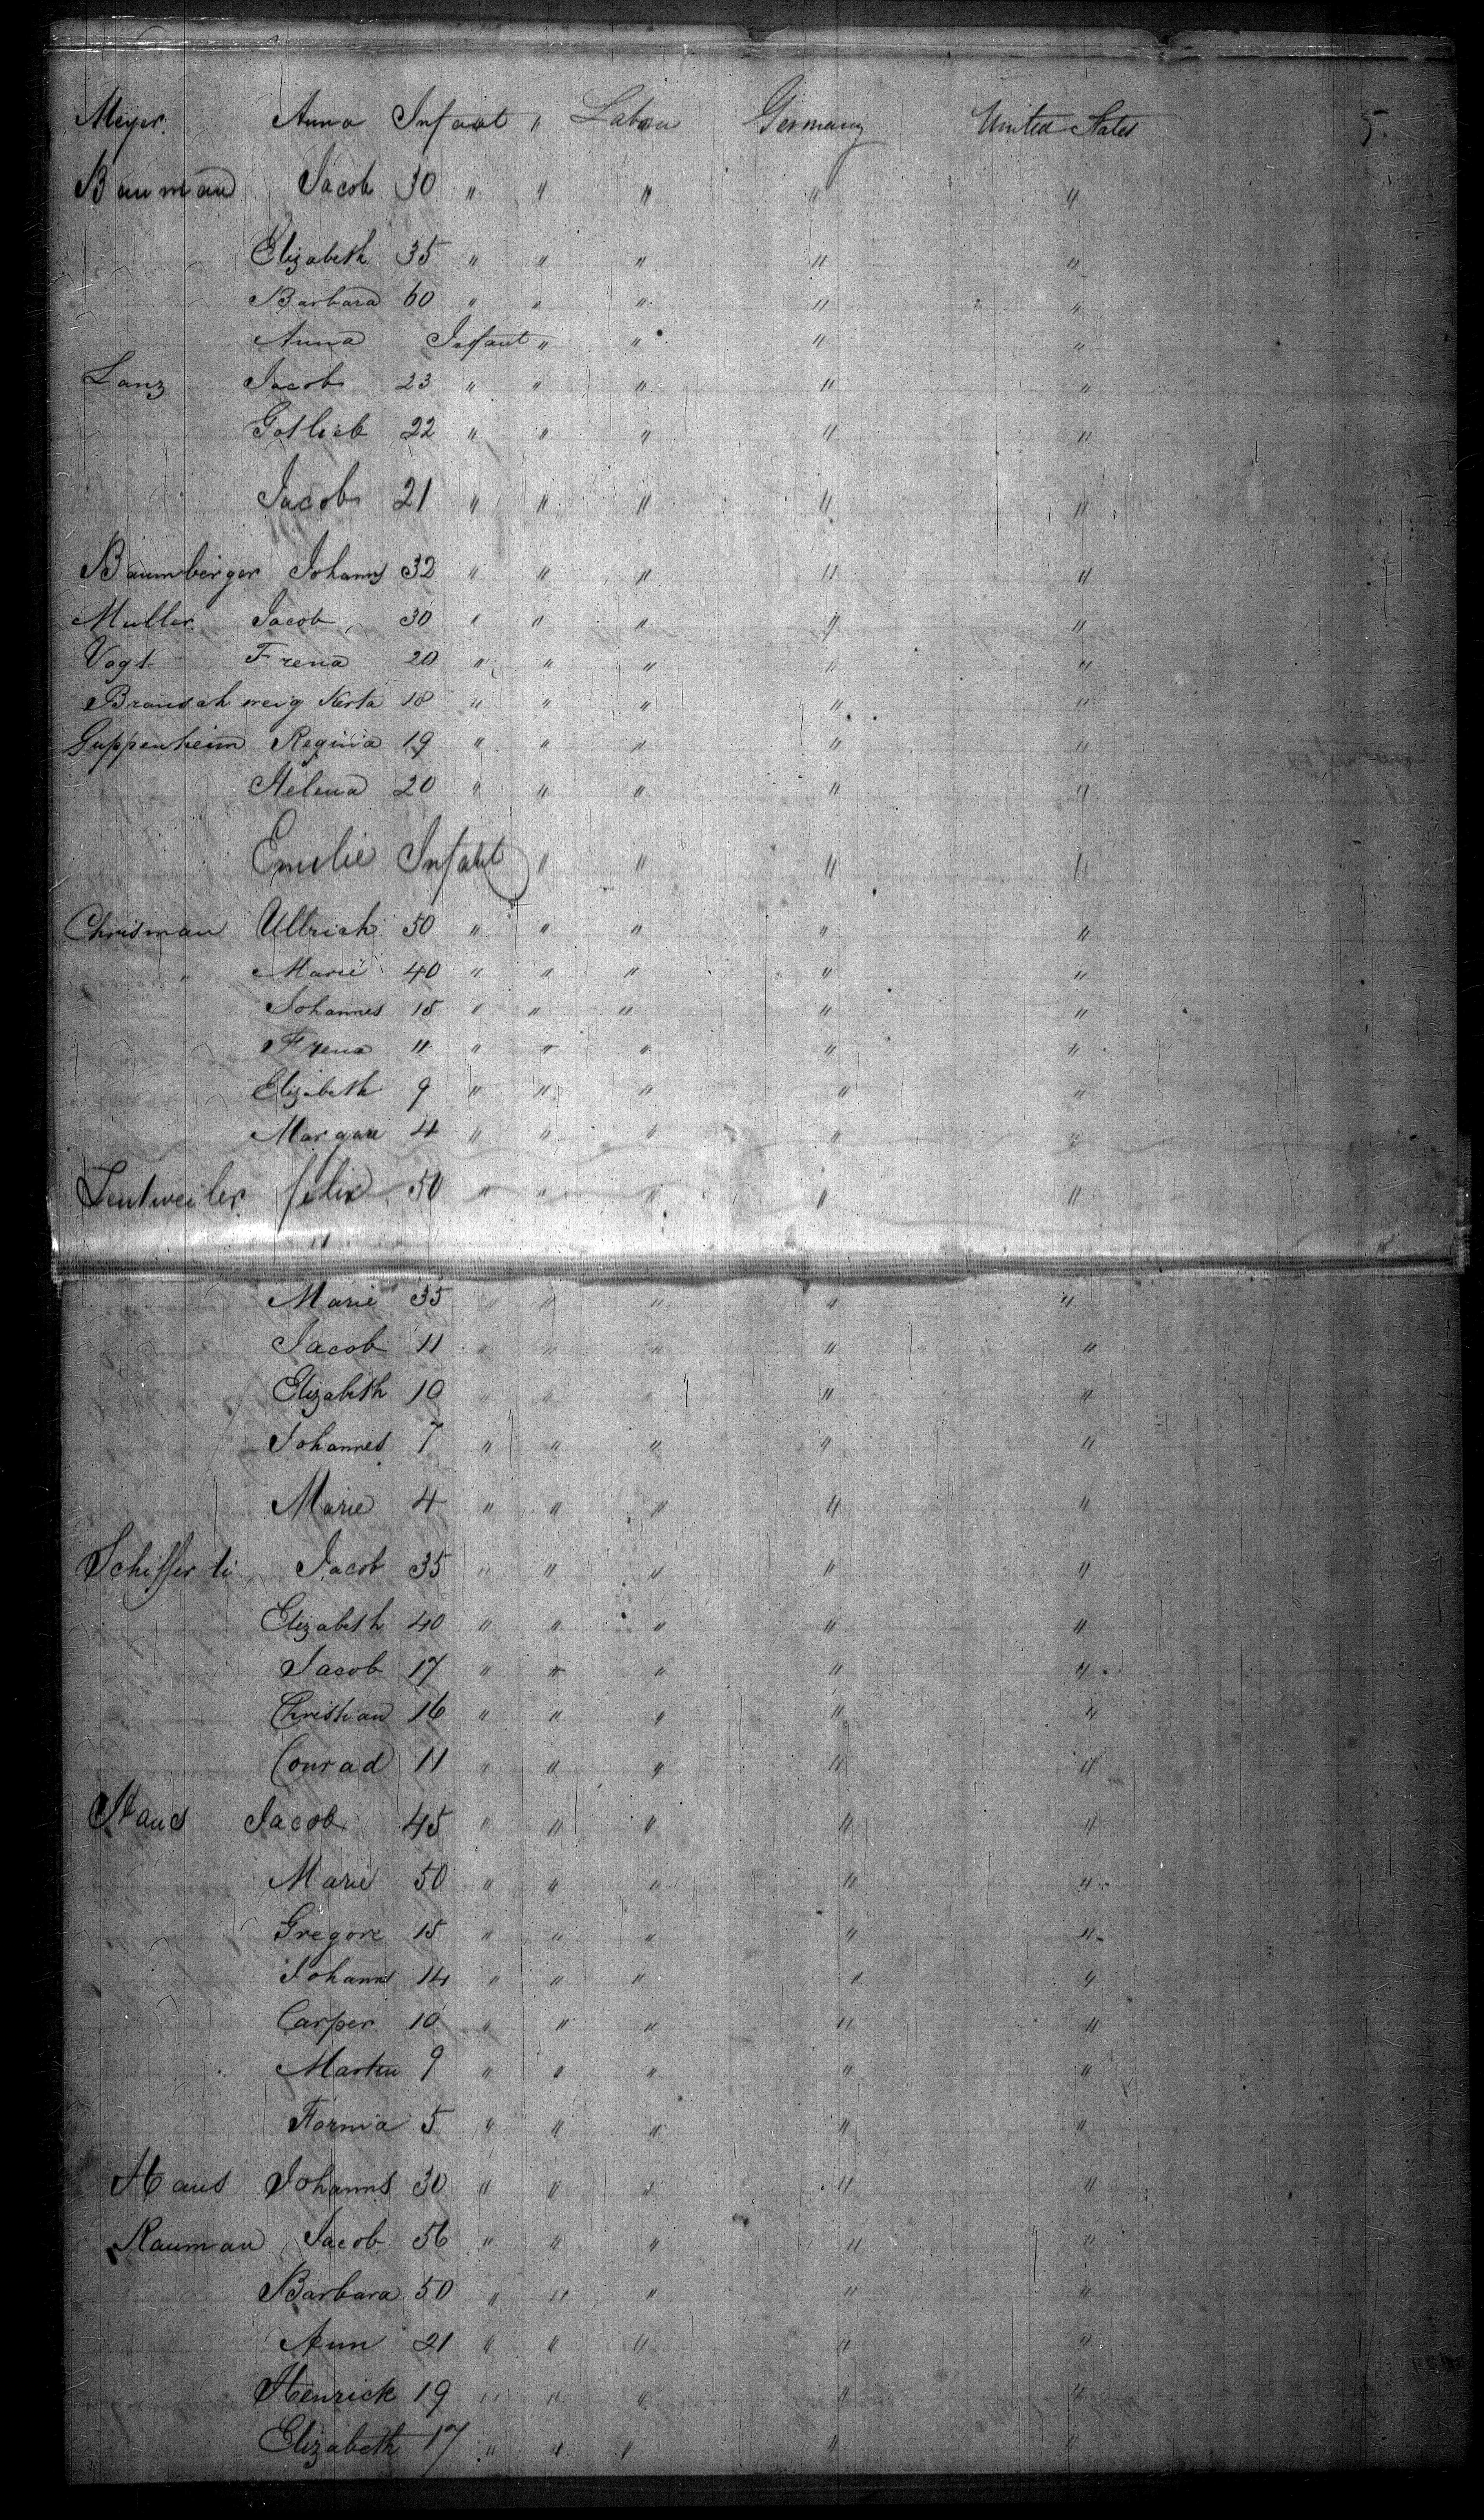 Meyer Anna Infant " Labour Germany United States 5.
Bauman Jacob 30 " " " " "
Elizabeth 35 " " " " "
Barbara 60 " " " " "
Anna Infant " " " "
Lanz Jacob 23 " " " " "
Gotlieb 22 " " " " "
Jacob 21 " " " " "
Baumberger Johanns 32 " " " " "
Muller Jacob 30 " " " " "
Vogt Frena 20 " " " " "
Braunschweig Kerta 18 " " " " "
Guppenheim Regina 19 " " " " "
Helena 20 " " " " "
Emilie Infant " " " "
Chrisman Ullrich 50 " " " " "
" Marie 40 " " " " "
Johannes 15 " " " " "
Frena 11 " " " " "
Elizabeth 9 " " " " "
Margare 4 " " " " "
Lentweiler felix 50 " " " " "
"
Marie 35 " " " " "
Jacob 11 " " " " "
Elizabeth 10 " " " " "
Johannes 7 " " " " "
Marie 4 " " " " "
Schifferli Jacob 35 " " " " "
Elizabeth 40 " " " " "
Jacob 17 " " " " "
Christian 16 " " " " "
Conrad 11 " " " " "
Haus Jacob 45 " " " " "
Marie 50 " " " " "
Gregore 15 " " " " "
Johanns 14 " " " " "
Carper 10 " " " " "
Martin 9 " " " " "
Forma 5 " " " " "
Haus Johanns 30 " " " " "
Rauman Jacob 56 " " " " "
Barbara 50 " " " " "
Ann 21 " " " " "
Henrick 19 " " " " "
Elizabeth 17 " " " " "